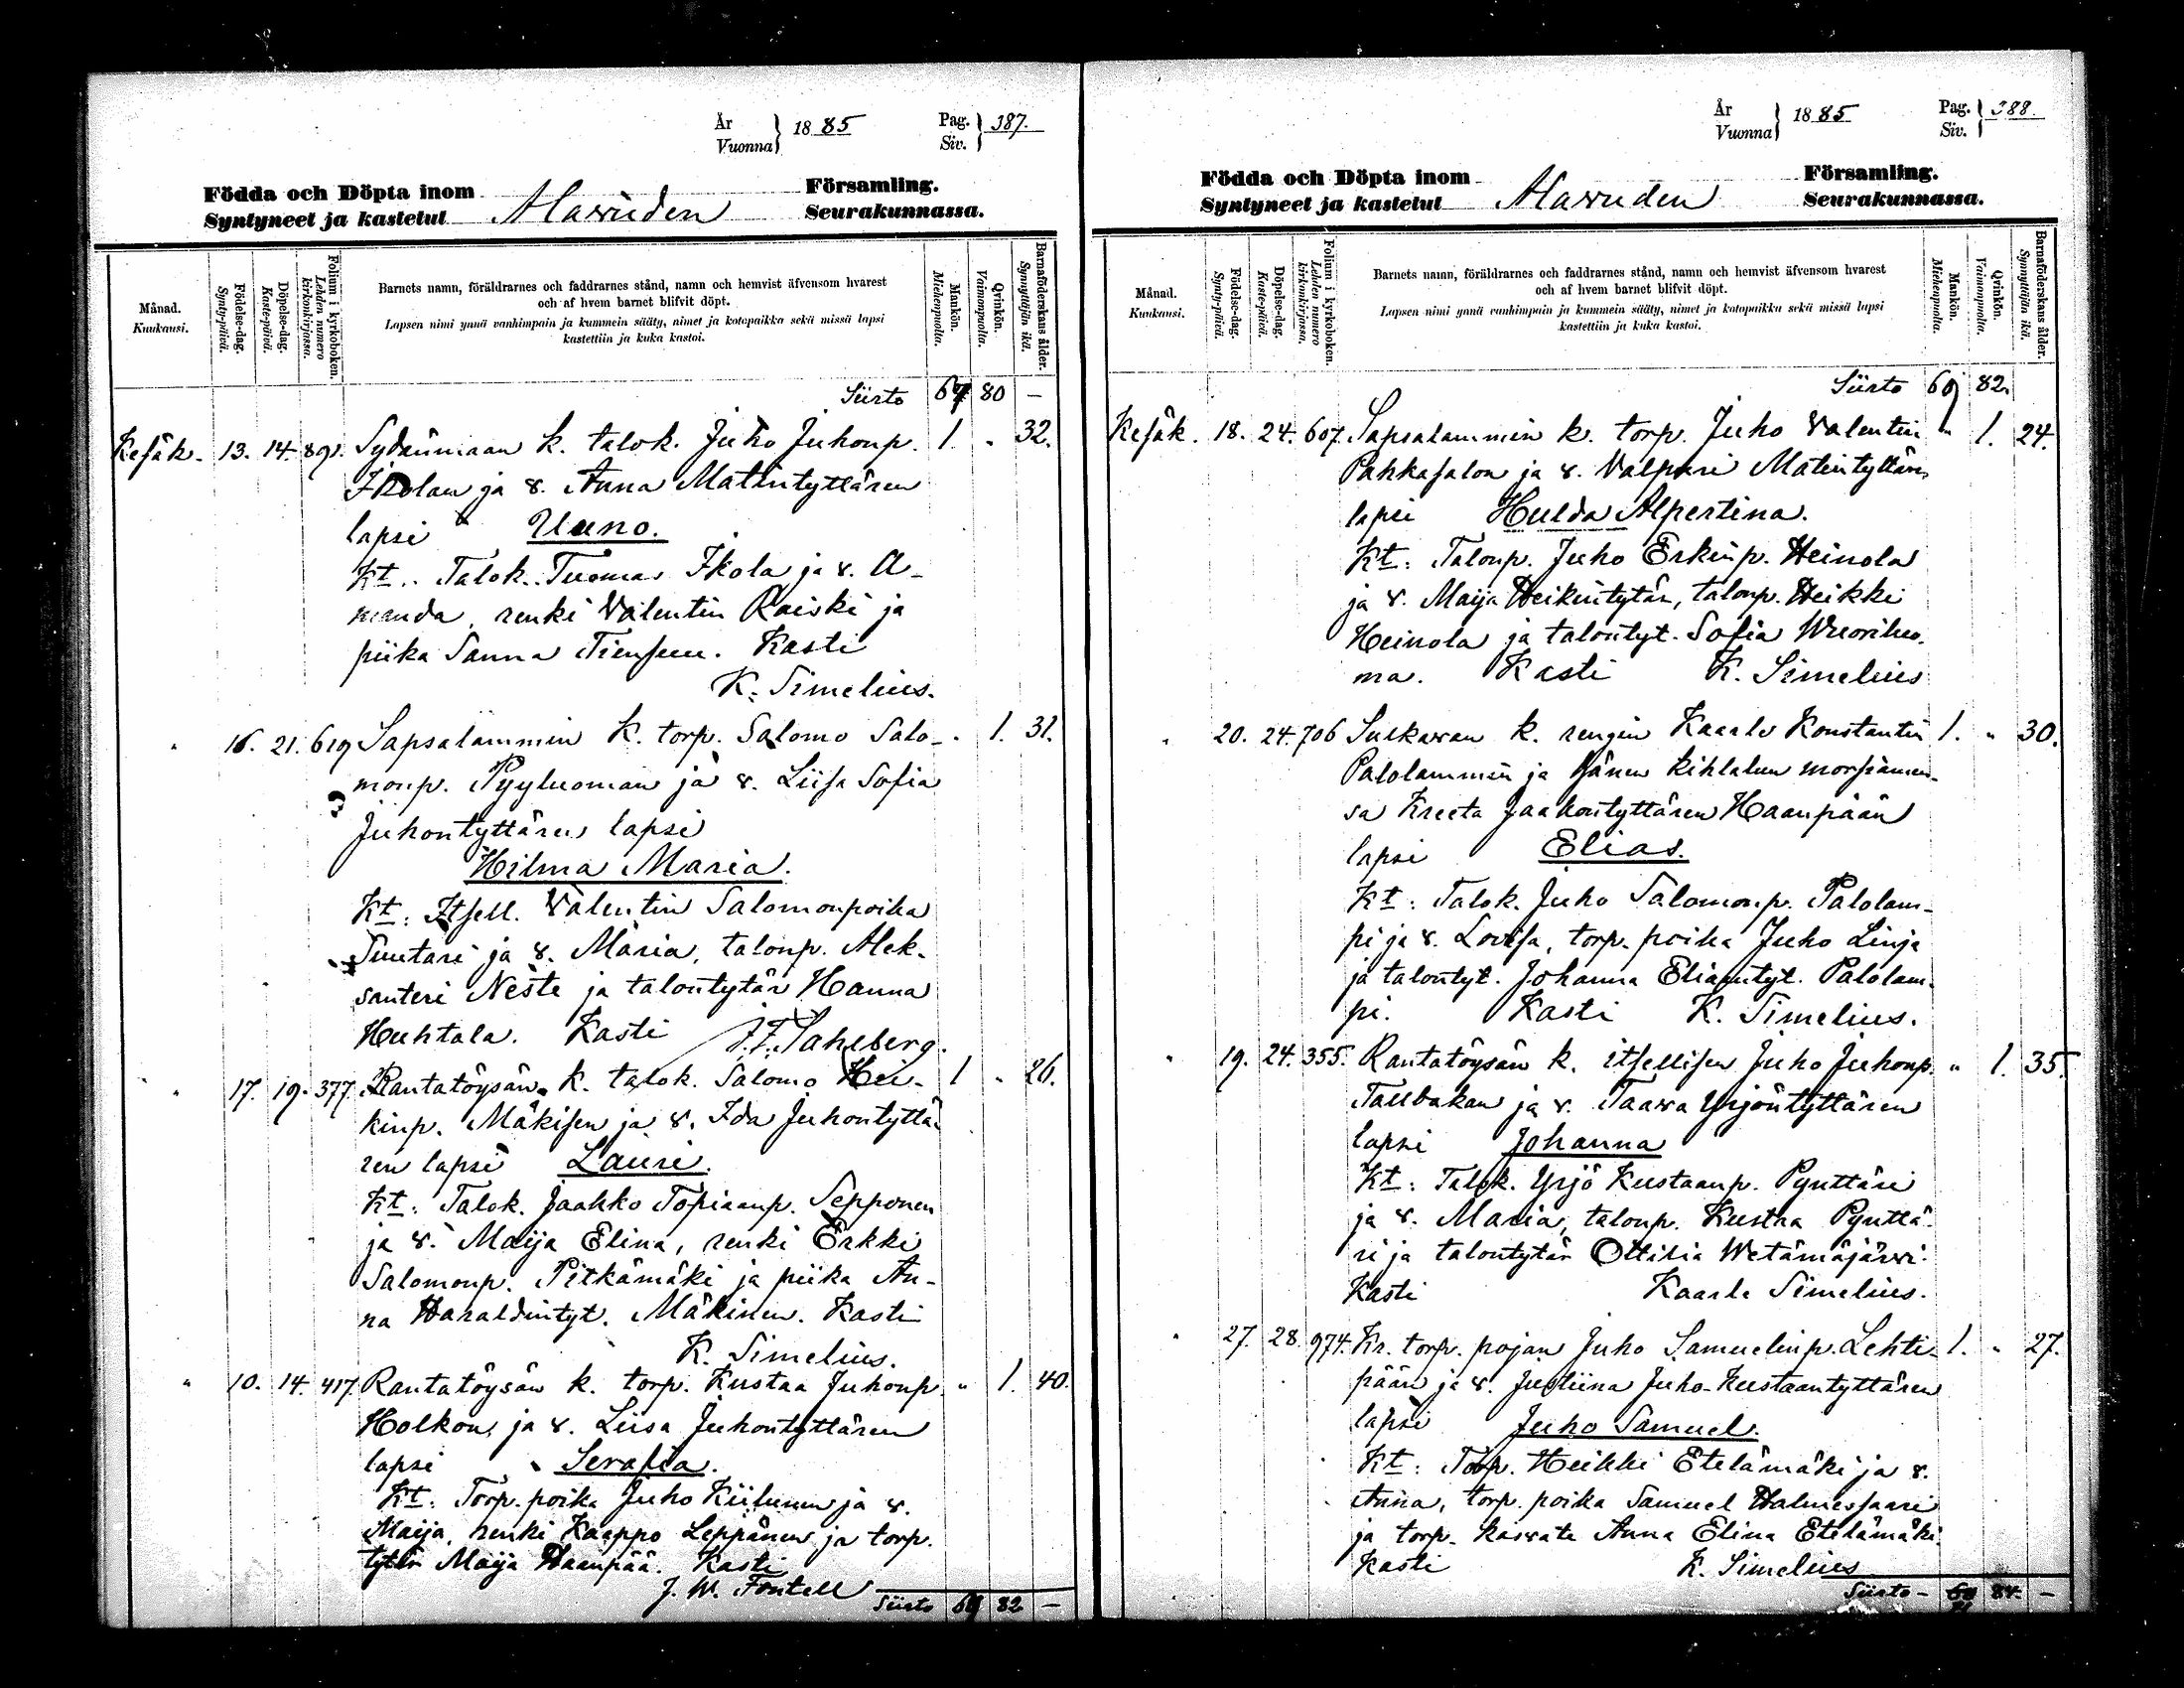 År
Vuonna } 1885
Pag.
Siv. } 387.
Födda och Döpta inom
Syntyneet ja kastetut
Alawuden
Församling.
Seurakunnassa.
Månad.
Kuukausi.
Födelse-dag.
Synty-päivä.
Döpelse-dag.
Kaste-päivä.
Folium i kyrkoboken.
Lehden numero
kirkonkirjassa.
Barnets namn, föräldrarnes och faddrarnes stånd, namn och hemvist äfvensom hvarest
och af hvem barnet blifvit döpt.
Lapsen nimi ynnä vanhimpain ja kummein sääty, nimet ja kotopaikka sekä missä lapsi
kastettiin ja kuka kastoi.
Mankön.
Miehenpuolta.
Qvinkön.
Vaimonpuolta.
Barnaföderskans ålder.
Synnyttäjän ikä.
Siirto 67 80 —
Kesäk. 13. 14. 891. Sydänmaan k. talok. Juho Juhonp. 1. " 32.
Ikolan ja v. Anna Matintyttären
lapsi Uuno.
Kt. Talok. Tuomas Ikola ja v. A-
manda, renki Valentin Raiski ja
piika Sanna Tiensuu. Kasti
K. Simelius.
" 16. 21. 619 Sapsalammin k. torp. Salomo Salo- " 1. 31.
monp. Pyyluoman ja v. Liisa Sofia
Juhontyttären lapsi
Hilma Maria.
Kt: Itsell. Valentin Salomonpoika
Suutari ja v. Maria, talonp. Alek-
santeri Neste ja talontytär Hanna
Huhtala. Kasti J. F. Sahlberg.
" 17. 19. 377. Rantatöysän k. talok. Salomo Hei- 1 " 26.
kinp. Mäkisen ja v. Ida Juhontyttä-
ren lapsi Lauri.
Kt: Talok. Jaakko Topiaanp. Sepponen
ja v. Maija Elina, renki Erkki
Salomonp. Pitkämäki ja piika An-
na Haraldintyt. Mäkinen. Kasti
K. Simelius.
" 10. 14. 417. Rantatöysän k. torp. Kustaa Juhonp. " 1. 40.
Holkon ja v. Liisa Juhontyttären
lapsi Serafia.
Kt: Torp. poika Juho Kiilunen ja v.
Maija, renki Kaappo Leppänen ja torp.
tytär Maija Haanpää. Kasti
J. W. Fontell
Siirto 69 82 —
År
Vuonna } 1885
Pag.
Siv. } 388.
Födda och Döpta inom
Syntyneet ja kastetut
Alawuden
Församling.
Seurakunnassa.
Månad.
Kuukausi.
Födelse-dag.
Synty-päivä.
Döpelse-dag.
Kaste-päivä.
Folium i kyrkoboken.
Lehden numero
kirkonkirjassa.
Barnets namn, föräldrarnes och faddrarnes stånd, namn och hemvist äfvensom hvarest
och af hvem barnet blifvit döpt.
Lapsen nimi ynnä vanhimpain ja kummein sääty, nimet ja kotopaikka sekä missä lapsi
kastettiin ja kuka kastoi.
Mankön.
Miehenpuolta.
Qvinkön.
Vaimonpuolta.
Barnaföderskans ålder.
Synnyttäjän ikä.
Siirto 69 82.
Kesäk. 18. 24. 607. Sapsalammin k. torp. Juho Valentin " 1. 24.
Pahkasalon ja v. Valpuri Matintyttären
lapsi Hulda Alpertina.
Kt: Talonp. Juho Erkinp. Heinola
ja v. Maija Heikintytär, talonp. Heikki
Heinola ja talontyt. Sofia Wuorihuo-
ma. Kasti K. Simelius
" 20. 24. 706 Sulkavan k. rengin Kaarlo Konstantin 1. " 30.
Palolammin ja hänen kihlatun morsiamen-
sa Kreeta Jaakontyttären Haanpään
lapsi Elias.
Kt: Talok. Juho Salomonp. Palolam-
pi ja v. Lovisa, torp. poika Juho Linja
ja talontyt. Johanna Eliaantyt. Palolam-
pi. Kasti K. Simelius.
" 19. 24. 355. Rantatöysän k. itsellisen Juho Juhonp. " 1. 35.
Tallbakan ja v. Taava Yrjöntyttären
lapsi Johanna
Kt: Talok. Yrjö Kustaanp. Pynttäri
ja v. Maria, talonp. Kustaa Pynttä-
ri ja talontytär Ottilia Wetämäjärwi.
Kasti Kaarle Simelius.
" 27. 28. 974. Kr. torp. pojan Juho Samuelinp. Lehti- 1. " 27.
pään ja v. Justiina Juho-Kustaantyttären
lapsi Juho Samuel.
Kt: Torp. Heikki Etelämäki ja v.
Anna, torp. poika Samuel Halmessaari
ja torp. kasvate Anna Elina Etelämäki.
Kasti K. Simelius
Siirto - 84. —